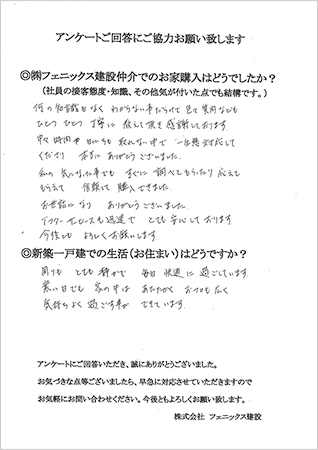 アンケートご回答にご協力お願い致します
◎㈱フェニックス建設仲介でのお家購入はどうでしたか？
（社員の接客態度・知識、その他気が付いた点でも結構です。）
何の知識もなく わからない事だらけで 色々質問なども
ひとつ ひとつ 丁寧に 教えて頂き 感謝しております
中々 時間や 日にちも 取れない中で 一生懸命対応して
くださり 本当に ありがとう ございました。
私の 気になった事でも すぐに 調べてもらったり 応えて
もらえて 信頼して 購入できました。
お世話になり ありがとう ございました。
アフターサービスも迅速で とても 安心しております。
今後とも よろしくお願いします。
◎新築一戸建での生活（お住まい）はどうですか？
周りも とても 静かで 毎日 快適に 過ごしています。
寒い日でも 家の中は あたたかく おフロも広く
気持ちよく 過ごす事が できています。
アンケートにご回答いただき、誠にありがとうございました。
お気づきな点等ございましたら、早急に対応させていただきますので
お気軽にお問い合わせください。今後ともよろしくお願い致します。
株式会社 フェニックス建設